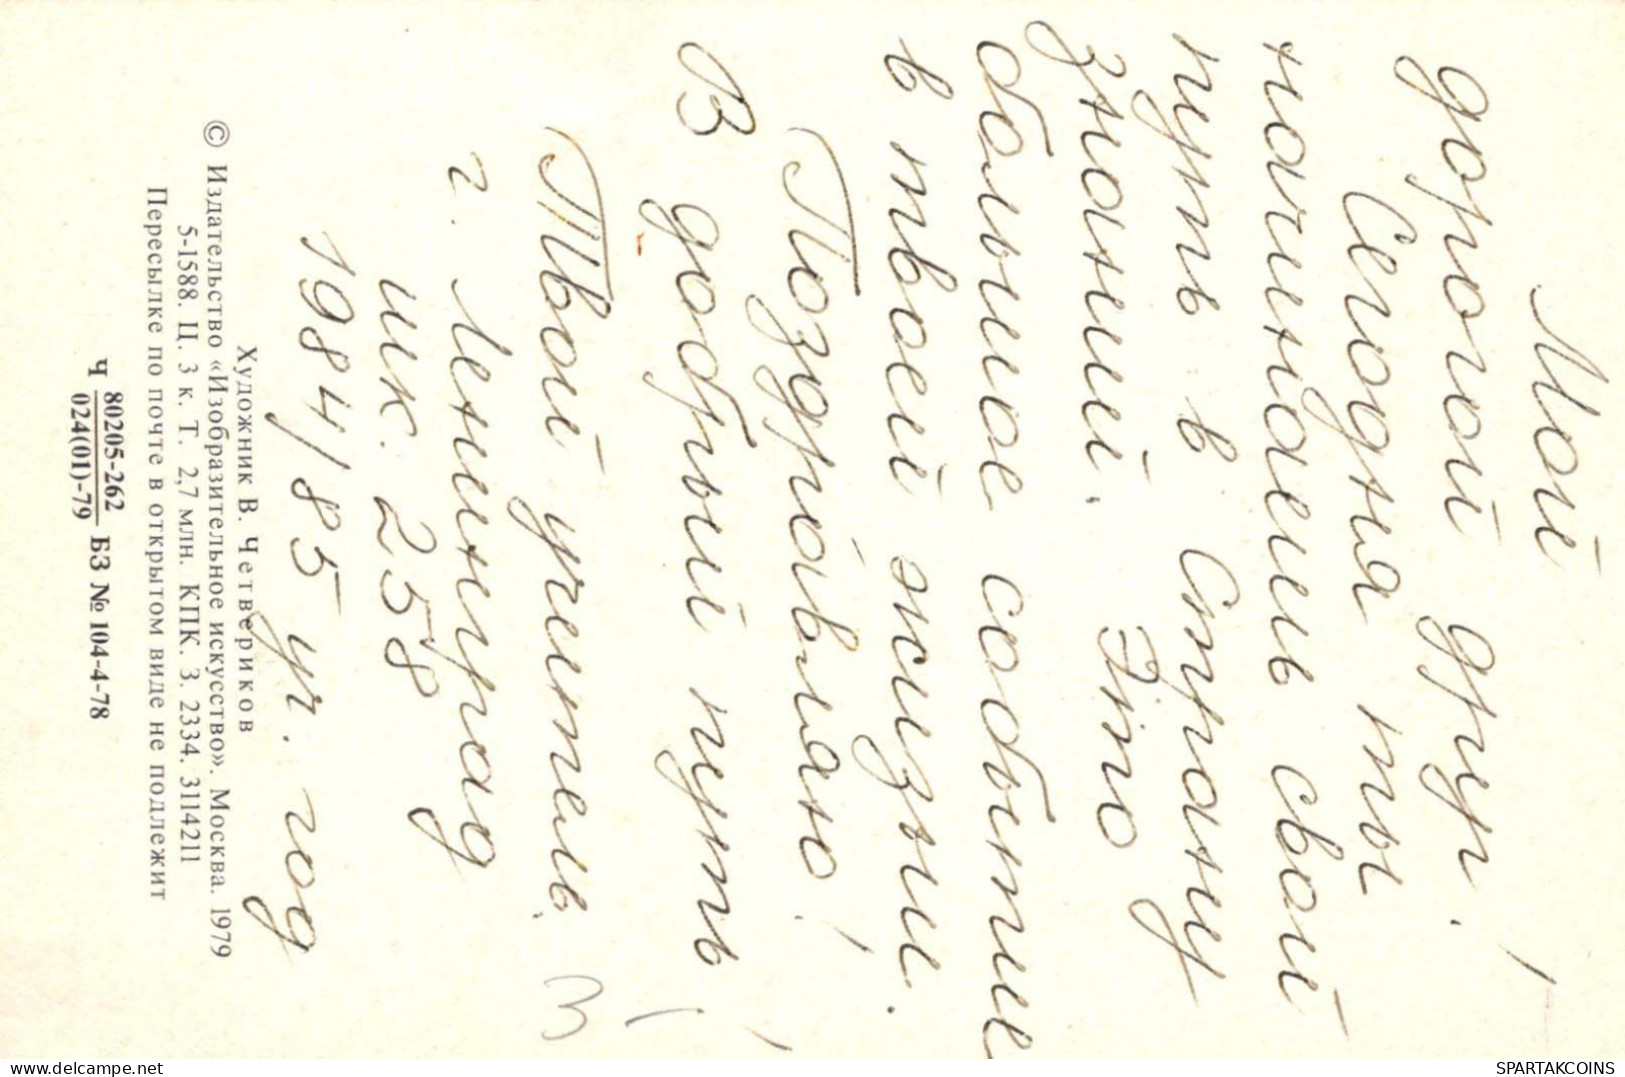 Мой
дорогой друг!
Сегодня ты
начинаешь свой
путь в Страну
знаний. Это
большое событие
в твоей жизни.
Поздравляю!
В добрый путь!
Твой учитель.
г. Ленинград
шк. 258
1984/85 уч. год
Художник В. Четвериков
© Издательство «Изобразительное искусство». Москва. 1979
5-1588. Ц. 3 к. Т. 2,7 млн. КПК. З. 2334. 3114211
Пересылке по почте в открытом виде не подлежит
Ч 80205-262 БЗ № 104-4-78
024(01)-79
hippostcard.com
SPARTAKCOINS